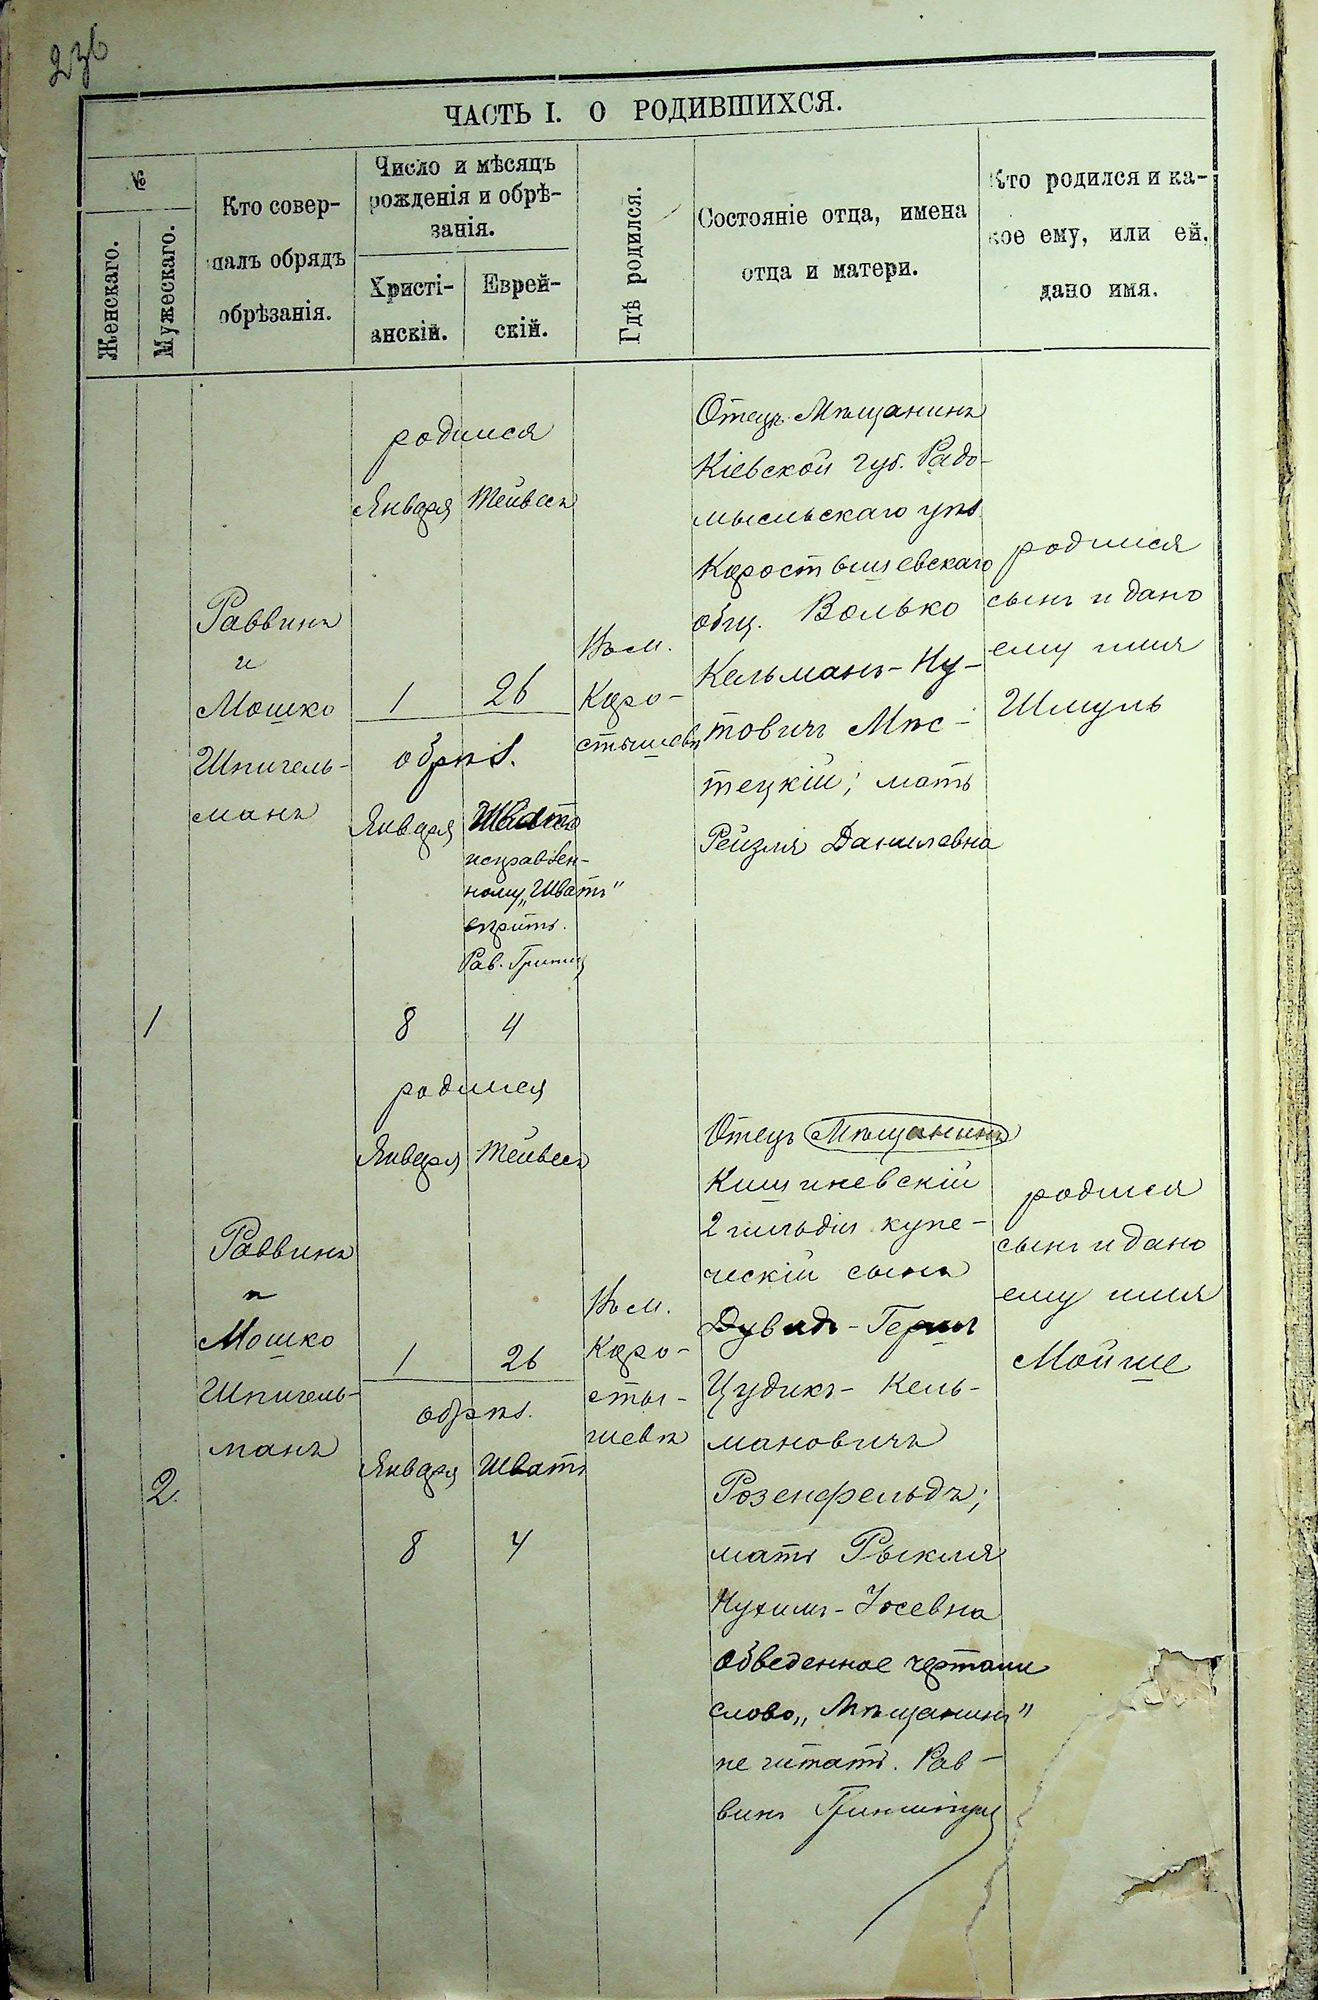 236
ЧАСТЬ I. О РОДИВШИХСЯ.
№
Женскаго.
Мужескаго.
Кто совер-
шалъ обрядъ
обрѣзанія.
Число и мѣсяцъ
рожденія и обрѣ-
занія.
Христі-
анскій.
Еврей-
скій.
Гдѣ родился.
Состояніе отца, имена
отца и матери.
Кто родился и ка-
кое ему, или ей,
дано имя.
1
Раввинъ
и
Мошко
Шпигель-
манъ
родился
Января Тейвесъ
1 26
обрѣз.
Января Шватъ
исправлен-
ному „Шватъ"
вѣрить.
Рав.
8 4
Въ м.
Коро-
стышевѣ
Отецъ Мѣщанинъ
Кіевской губ. Радо-
мысльскаго уѣз
Коростышевскаго
общ. Волько
Кельманъ-Ну-
товичъ Мѣс-
тецкій; мать
Рейзля Даниловна
родился
сынъ и дано
ему имя
Шмуль
2.
Раввинъ
и
Мошко
Шпигель-
манъ
родился
Января Тейвесъ
1 26
обрѣз.
Января Шватъ
8 4
Въ м.
Коро-
сты-
шевѣ
Отецъ Мѣщанинъ
Кишиневскій
2 гильдіи купе-
ческій сынъ
Дувидъ-Герш
Цудикъ-Кель-
мановичъ
Розенфельдъ;
мать Рыкля
Нухимъ-Іосевна
Обведенное чертами
слово „Мѣщанинъ"
не читать. Рав-
винъ
родился
сынъ и дано
ему имя
Мойше